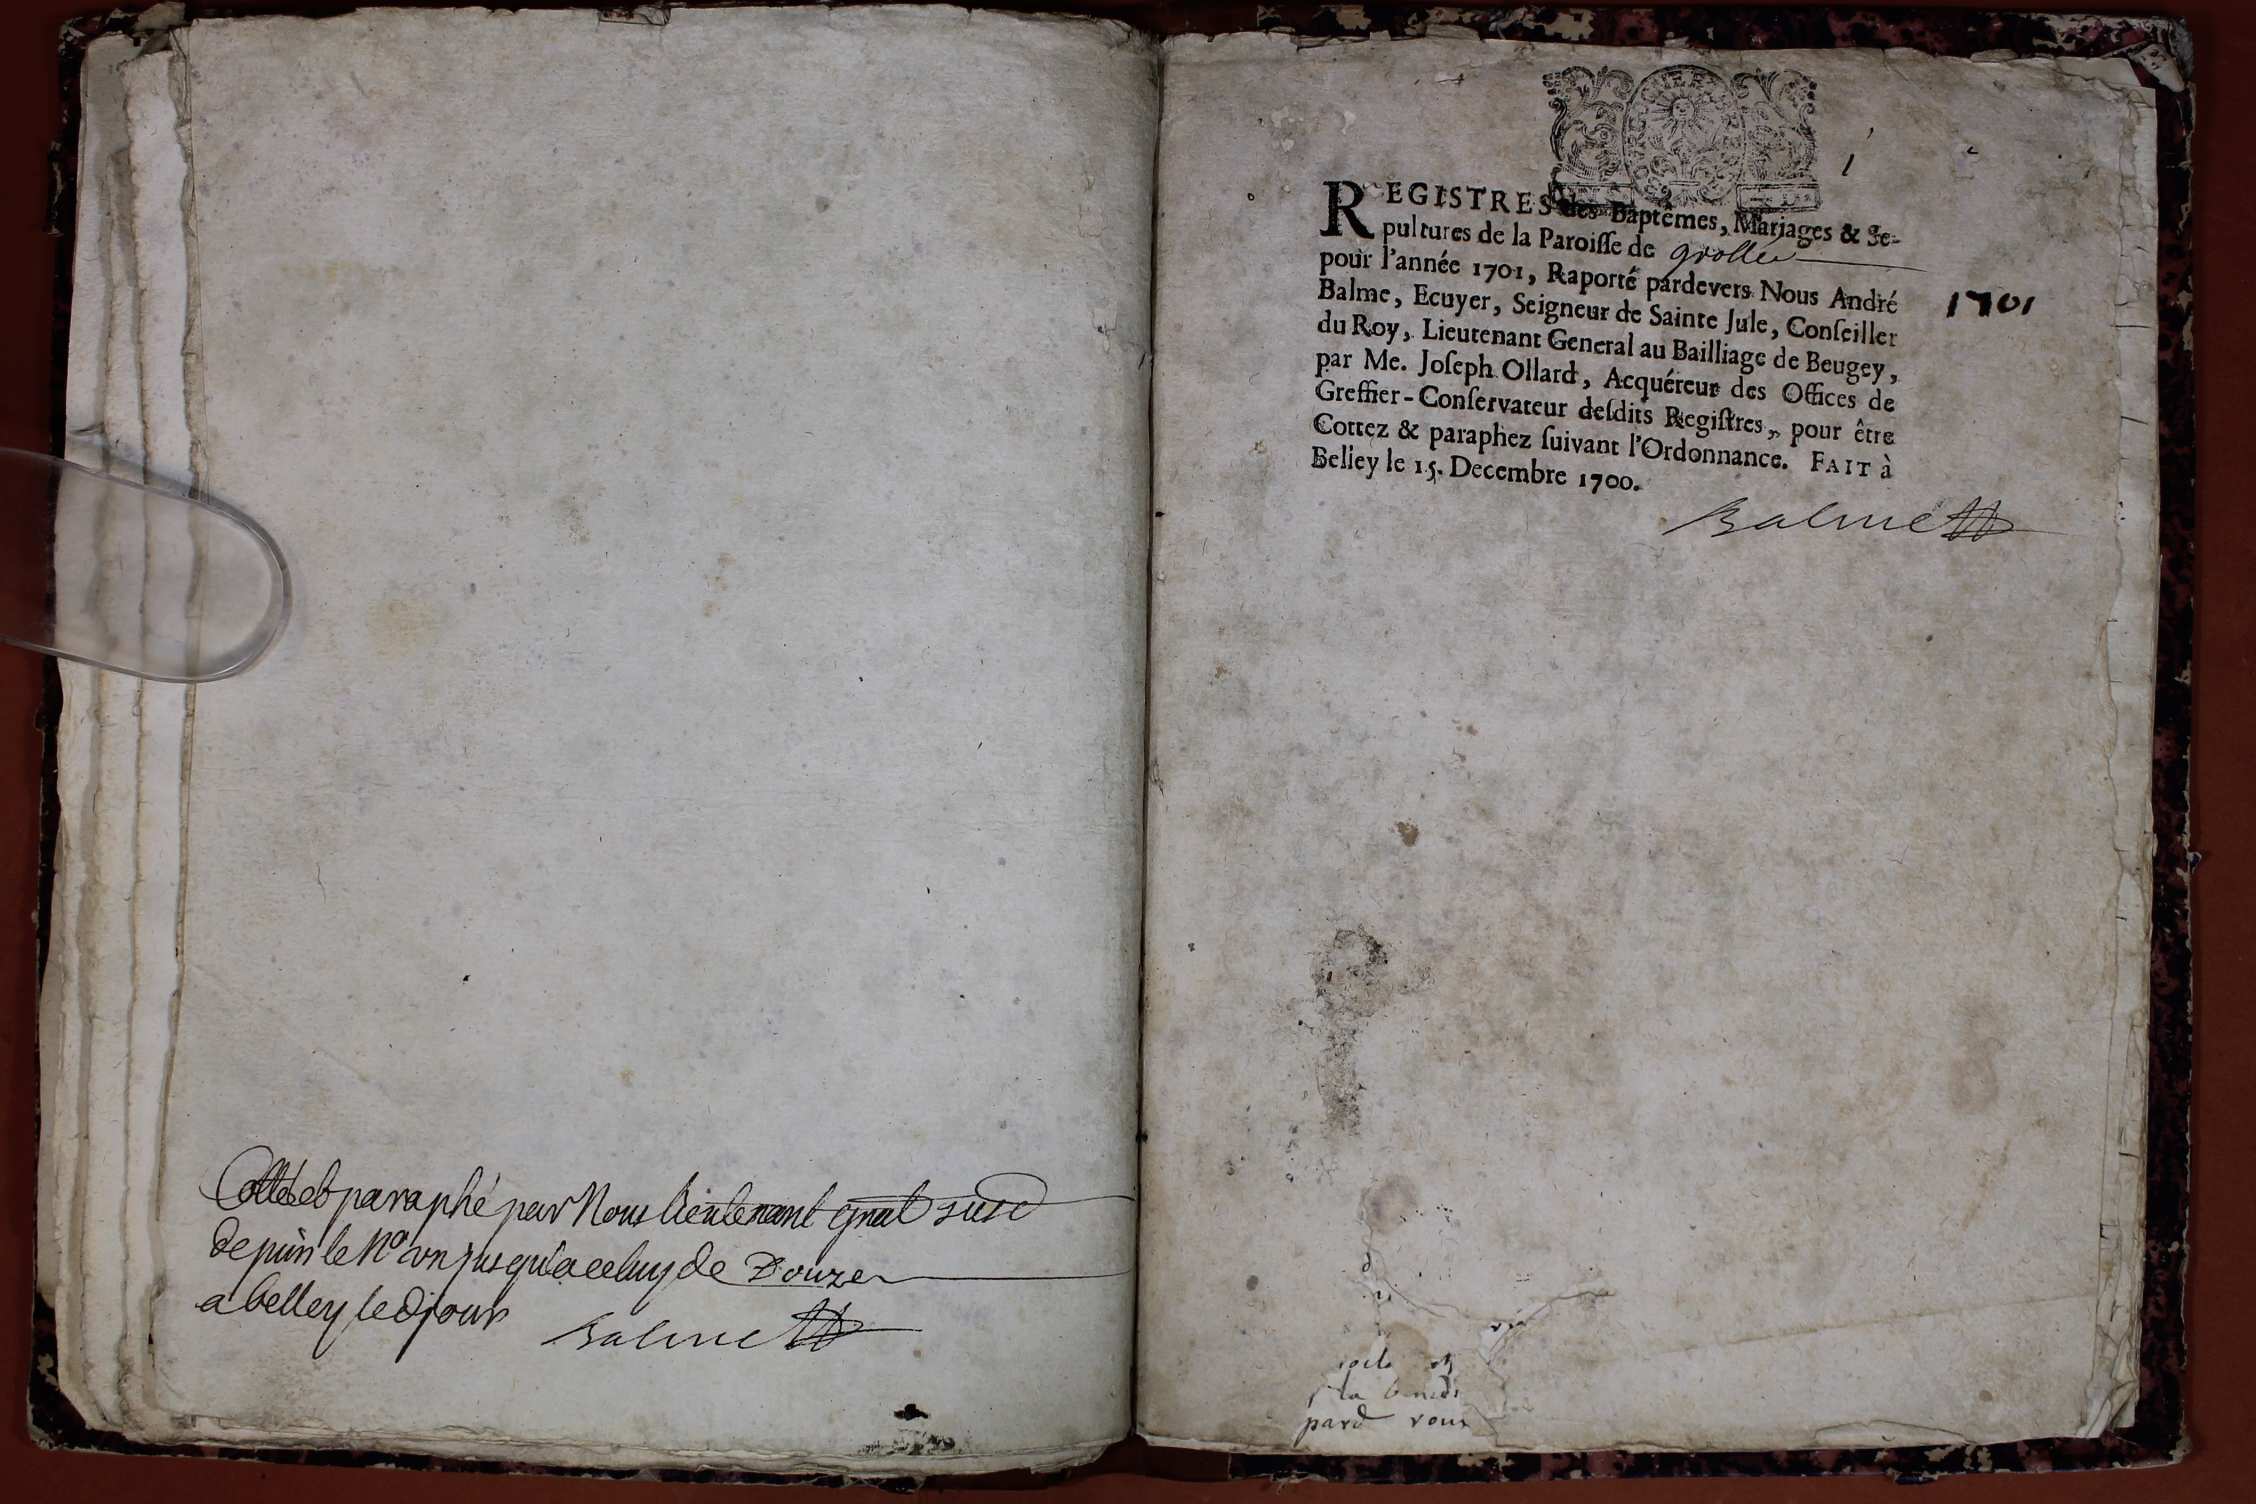 Cottéet paraphé par Nous lieutenant gnal susd
depuis le No un jusqu'a celluy de Douze
a belley led jour
Balme
1
REGISTRES des Baptêmes, Mariages & Se-
pultures de la Paroiſſe de grollée
pour l'année 1701, Raporté pardevers Nous André
Balme, Ecuyer, Seigneur de Sainte Jule, Conſeiller
du Roy, Lieutenant General au Bailliage de Beugey,
par Me. Joſeph Ollard, Acquéreur des Offices de
Greffier-Conſervateur deſdits Regiſtres, pour être
Cottez & paraphez ſuivant l'Ordonnance. FAIT à
Belley le 15. Decembre 1700.
1701
Balme
la
pard vous